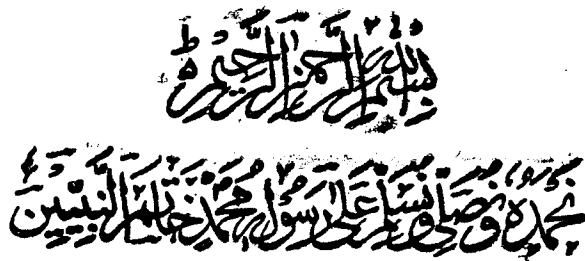 بِسْمِ اللّٰهِ الرَّحْمٰنِ الرَّحِيْمِ ط
نَحْمَدُهٗ وَ نُصَلِّيْ وَ نُسَلِّمُ عَلٰى رَسُوْلِهٖ مُحَمَّدٍ خَاتَمِ النَّبِيِّيْنَ